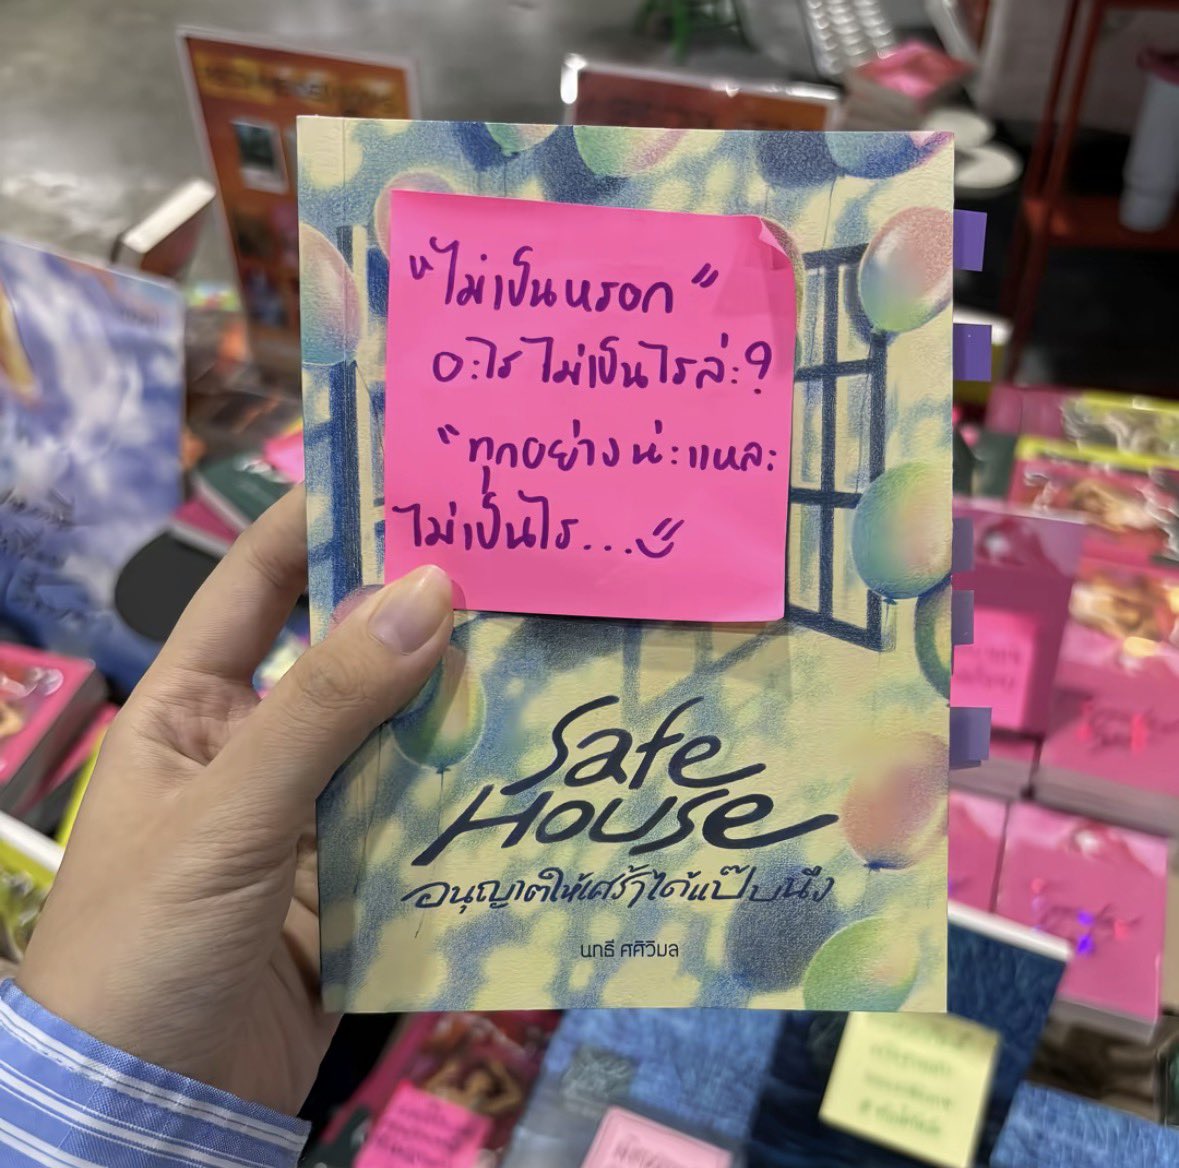 "ไม่เป็นหรอก"
อะไร ไม่เป็นไรล่ะ?
"ทุกอย่างน่ะแหละ
ไม่เป็นไร...
Safe
House
อนุญาตให้เศร้าได้แป๊บนึง
นทธี ศศิวิมล